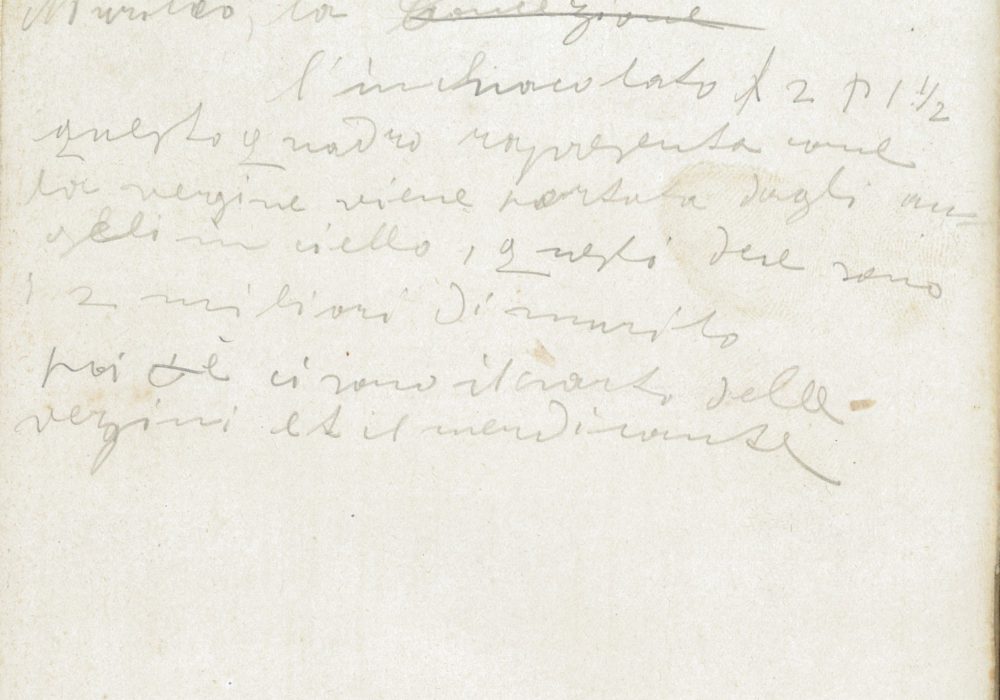 Murileo, la Concezione
l'inchiacolato 2 p 1 1/2
questo quadro rapresenta come
la vergine viene portata dagli an-
geli in ciello, questi due sono
i 2 miliori di murilo
poi è ci sono il delle
vergini et il mendicante